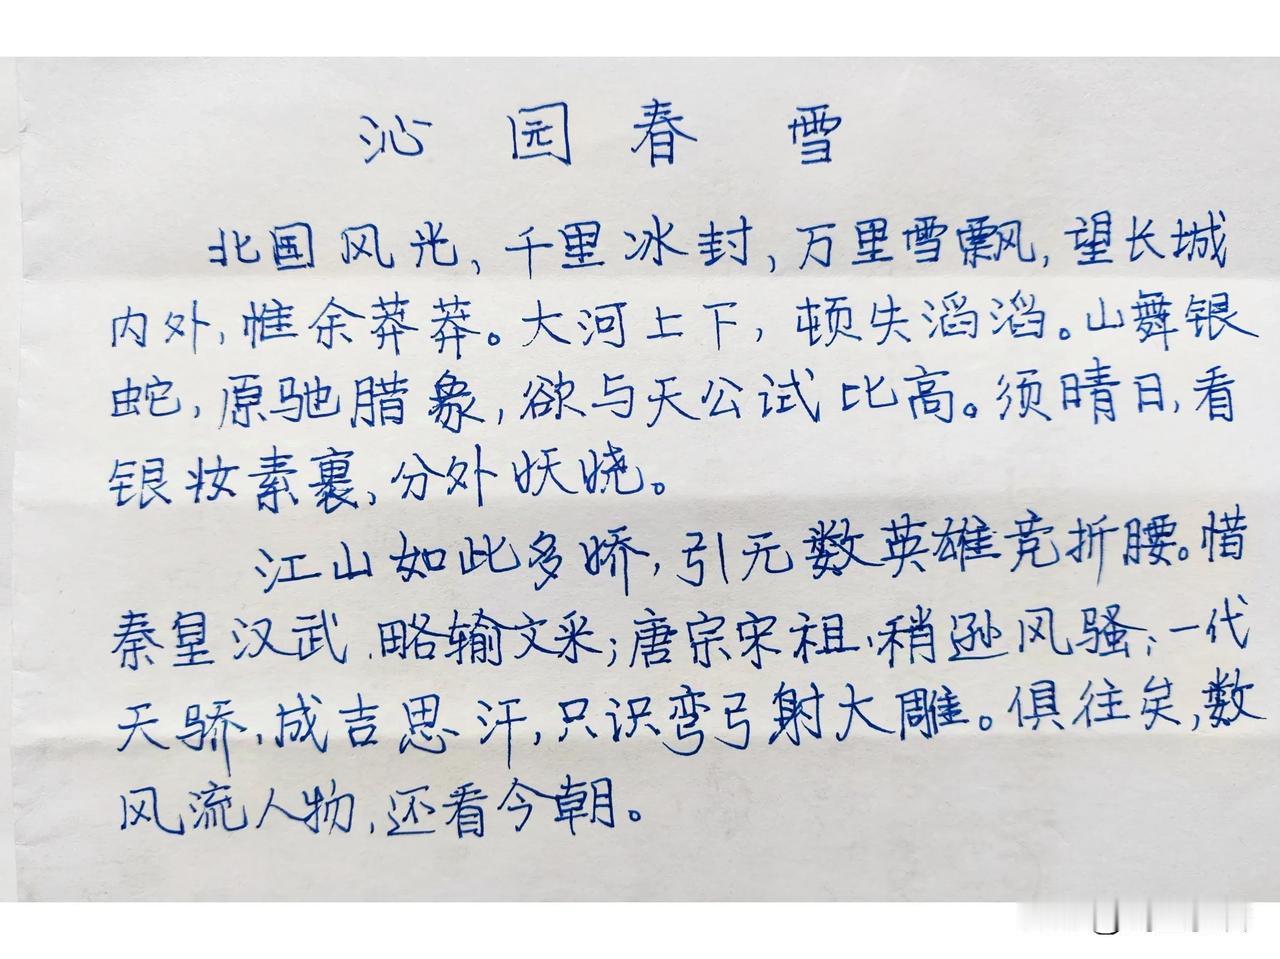 沁园春 雪
北国风光,千里冰封,万里雪飘,望长城
内外,惟余莽莽。大河上下,顿失滔滔。山舞银
蛇,原驰腊象,欲与天公试比高。须晴日,看
银妆素裹,分外妖娆。
江山如此多娇,引无数英雄竞折腰。惜
秦皇汉武,略输文采;唐宗宋祖,稍逊风骚;一代
天骄,成吉思汗,只识弯弓射大雕。俱往矣,数
风流人物,还看今朝。